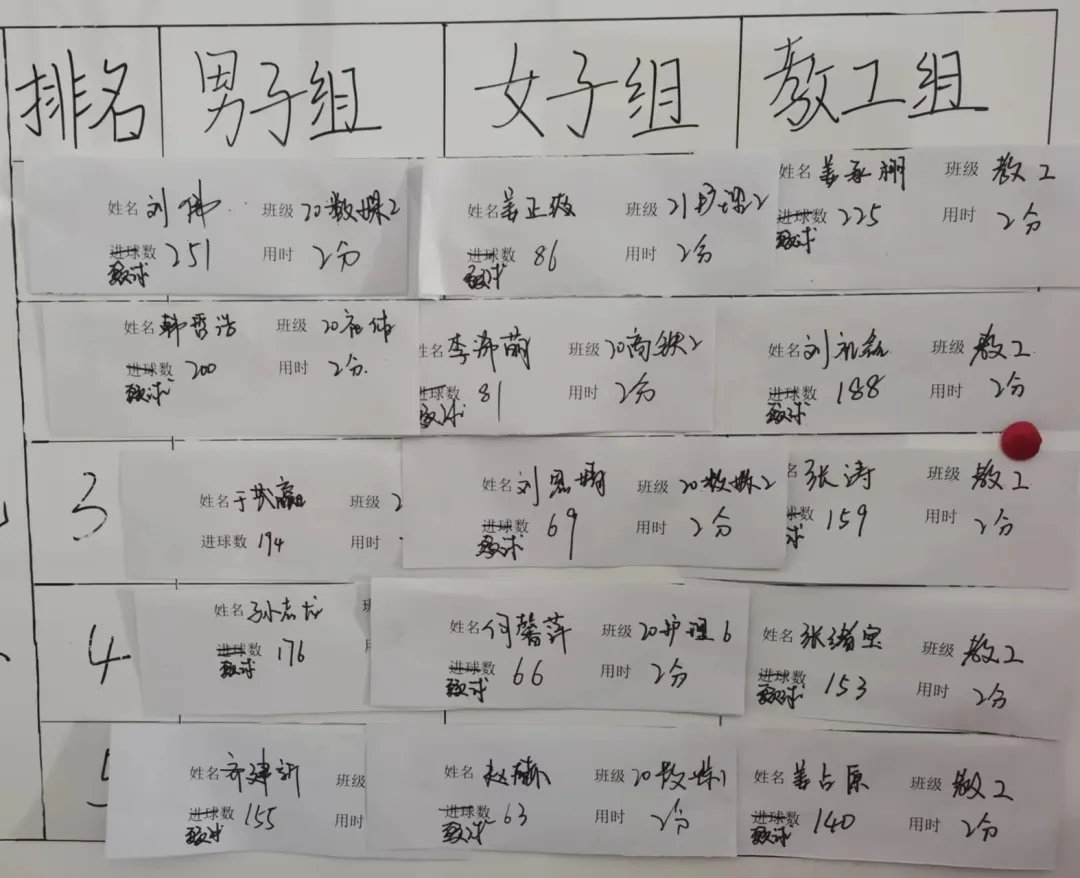 排名 男子组 女子组 教工组
姓名 刘伟 班级 20数媒2
进球数 251 用时 2分
颠球
姓名 姜正 班级 21护理2
进球数 86 用时 2分
颠球
姓名 姜永 班级 教工
进球数 225 用时 2分
颠球
姓名 韩哲浩 班级 20
进球数 200 用时 2分
颠球
姓名 李 萌 班级 20高铁2
进球数 81 用时 2分
颠球
姓名 刘 磊 班级 教工
进球数 188 用时 2分
颠球
3
姓名 于 赢 班级 2
进球数 194 用时
姓名 刘思 班级 20数媒2
进球数 69 用时 2分
颠球
名 张涛 班级 教工
球数 159 用时 2分
球
4
姓名 孙志龙
进球数 176
颠球
姓名 何馨萍 班级 20护理6
进球数 66 用时 2分
颠球
姓名 张绪宝 班级 教工
进球数 153 用时 2分
颠球
5
姓名 齐建新 班级
进球数 155 用时
颠球
姓名 赵 班级 20数媒1
进球数 63 用时 2分
颠球
姓名 姜占原 班级 教工
进球数 140 用时 2分
颠球